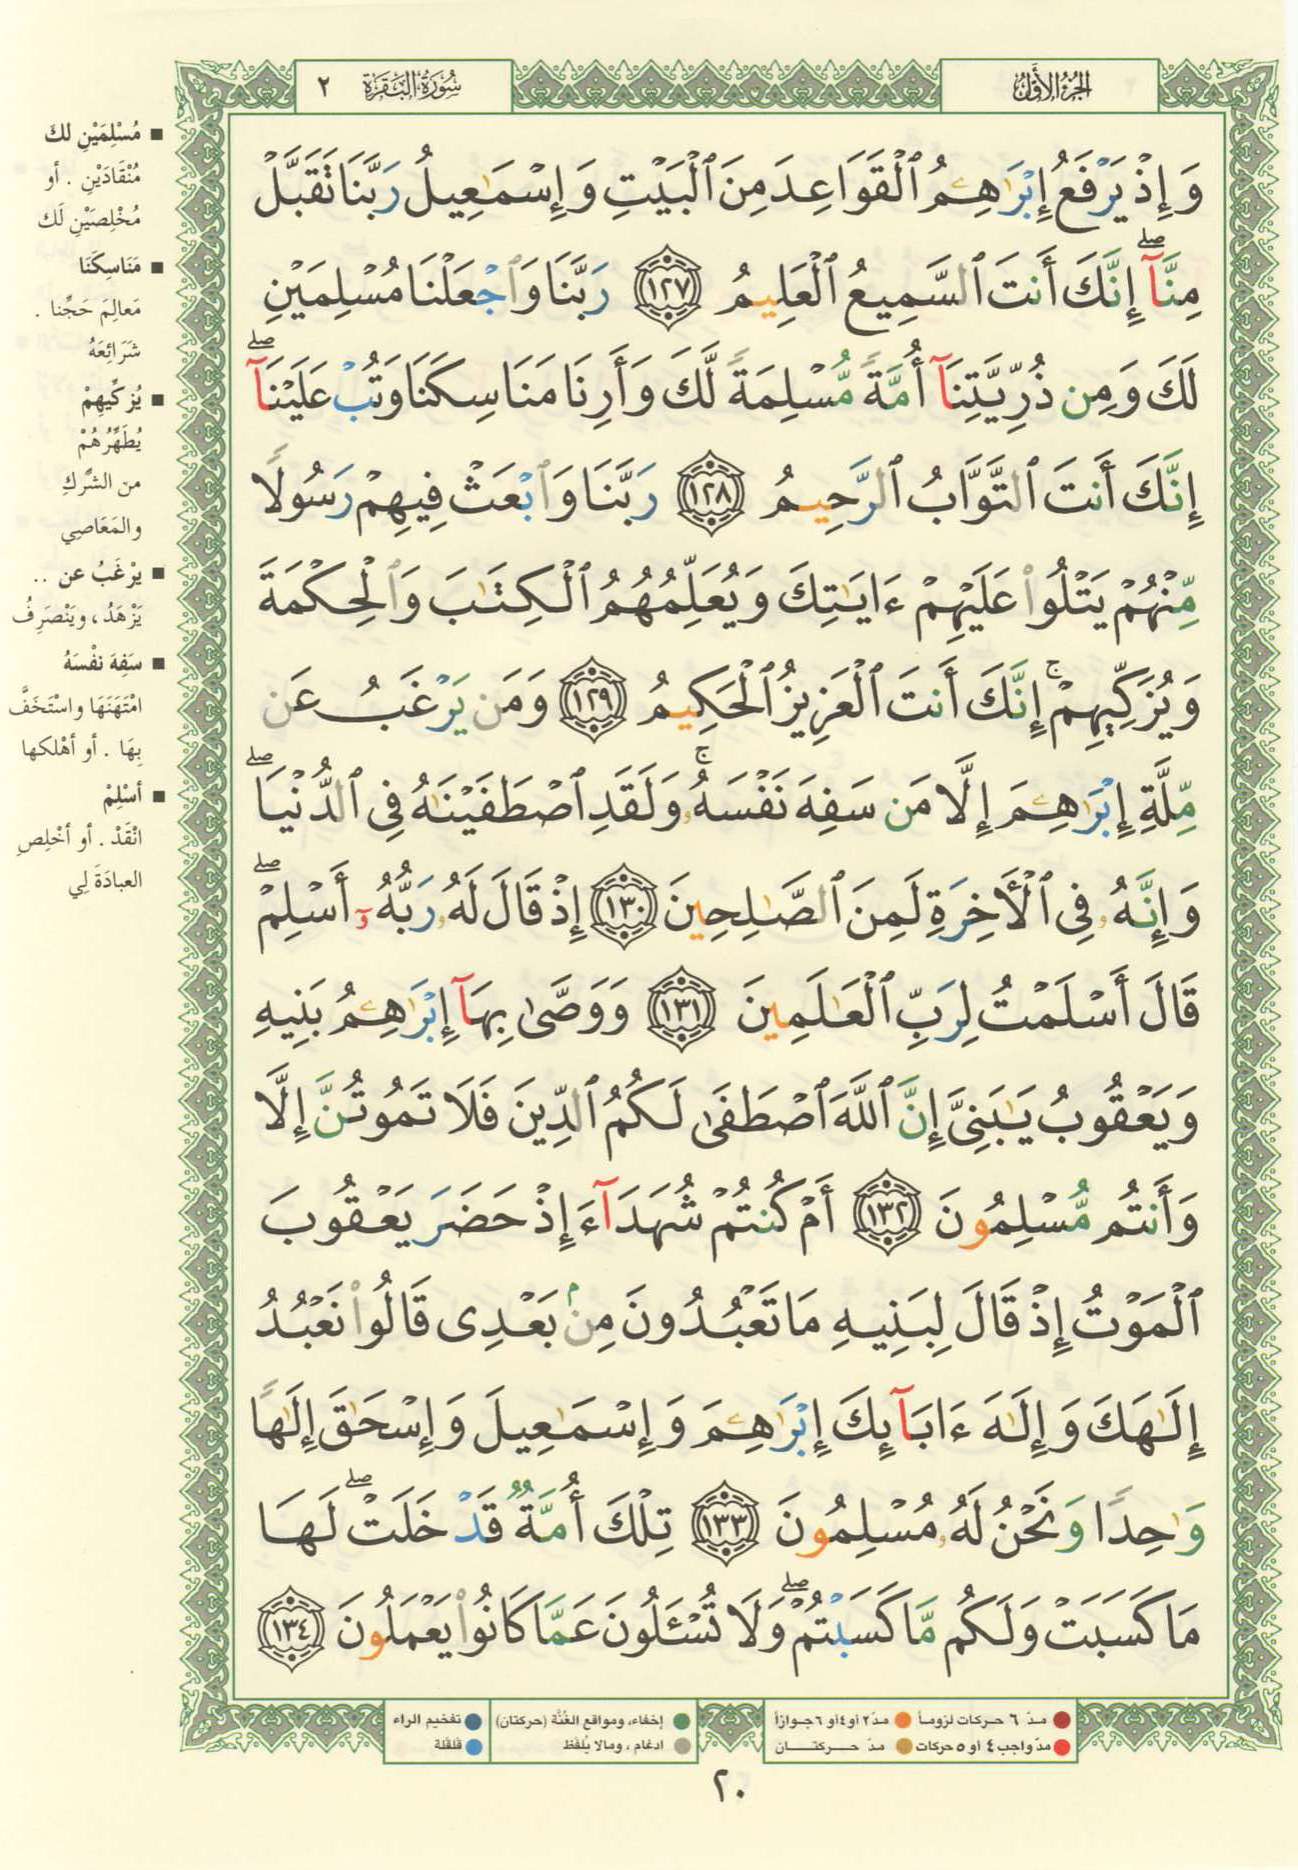 الجزء الأول
سورة البقرة ٢
وَإِذْ يَرْفَعُ إِبْرَٰهِۦمُ ٱلْقَوَاعِدَ مِنَ ٱلْبَيْتِ وَإِسْمَٰعِيلُ رَبَّنَا تَقَبَّلْ
مِنَّآ ۖ إِنَّكَ أَنتَ ٱلسَّمِيعُ ٱلْعَلِيمُ ١٢٧ رَبَّنَا وَٱجْعَلْنَا مُسْلِمَيْنِ
لَكَ وَمِن ذُرِّيَّتِنَآ أُمَّةً مُّسْلِمَةً لَّكَ وَأَرِنَا مَنَاسِكَنَا وَتُبْ عَلَيْنَآ ۖ
إِنَّكَ أَنتَ ٱلتَّوَّابُ ٱلرَّحِيمُ ١٢٨ رَبَّنَا وَٱبْعَثْ فِيهِمْ رَسُولًا
مِّنْهُمْ يَتْلُوا۟ عَلَيْهِمْ ءَايَٰتِكَ وَيُعَلِّمُهُمُ ٱلْكِتَٰبَ وَٱلْحِكْمَةَ
وَيُزَكِّيهِمْ ۚ إِنَّكَ أَنتَ ٱلْعَزِيزُ ٱلْحَكِيمُ ١٢٩ وَمَن يَرْغَبُ عَن
مِّلَّةِ إِبْرَٰهِۦمَ إِلَّا مَن سَفِهَ نَفْسَهُۥ ۚ وَلَقَدِ ٱصْطَفَيْنَٰهُ فِى ٱلدُّنْيَا ۖ
وَإِنَّهُۥ فِى ٱلْءَاخِرَةِ لَمِنَ ٱلصَّٰلِحِينَ ١٣٠ إِذْ قَالَ لَهُۥ رَبُّهُۥٓ أَسْلِمْ ۖ
قَالَ أَسْلَمْتُ لِرَبِّ ٱلْعَٰلَمِينَ ١٣١ وَوَصَّىٰ بِهَآ إِبْرَٰهِۦمُ بَنِيهِ
وَيَعْقُوبُ يَٰبَنِىَّ إِنَّ ٱللَّهَ ٱصْطَفَىٰ لَكُمُ ٱلدِّينَ فَلَا تَمُوتُنَّ إِلَّا
وَأَنتُم مُّسْلِمُونَ ١٣٢ أَمْ كُنتُمْ شُهَدَآءَ إِذْ حَضَرَ يَعْقُوبَ
ٱلْمَوْتُ إِذْ قَالَ لِبَنِيهِ مَا تَعْبُدُونَ مِنۢ بَعْدِى قَالُوا۟ نَعْبُدُ
إِلَٰهَكَ وَإِلَٰهَ ءَابَآئِكَ إِبْرَٰهِۦمَ وَإِسْمَٰعِيلَ وَإِسْحَٰقَ إِلَٰهًا
وَٰحِدًا وَنَحْنُ لَهُۥ مُسْلِمُونَ ١٣٣ تِلْكَ أُمَّةٌ قَدْ خَلَتْ ۖ لَهَا
مَا كَسَبَتْ وَلَكُم مَّا كَسَبْتُمْ ۖ وَلَا تُسْـَٔلُونَ عَمَّا كَانُوا۟ يَعْمَلُونَ ١٣٤
■ مُسْلِمَيْنِ لكَ
مُنْقَادَيْنِ . أو
مُخْلِصَيْنِ لَك
■ مَنَاسِكَنَا
مَعالِمَ حَجِّنا .
شَرَائِعَهُ
■ يُزكِّيهِمْ
يُطَهِّرُهُمْ
من الشِّركِ
والمَعَاصِي
■ يرْغَبُ عن ..
يَزْهَدُ ، ويَنْصَرِفُ
■ سَفِهَ نفْسَهُ
امْتَهَنَهَا واسْتَخَفَّ
بِهَا . أو أهْلكها
■ أسْلِمْ
انْقَدْ . أو أخْلِصِ
العبادَةَ لِي
مدّ ٦ حركات لزوماً مدّ ٢ أو ٤ أو ٦ جوازاً
مدّ واجب ٤ أو ٥ حركات مدّ حركتان
إخفاء، ومواقع الغُنَّة (حركتان)
ادغام ، ومالا يُلفَظ
تفخيم الراء
قلقلة
٢٠